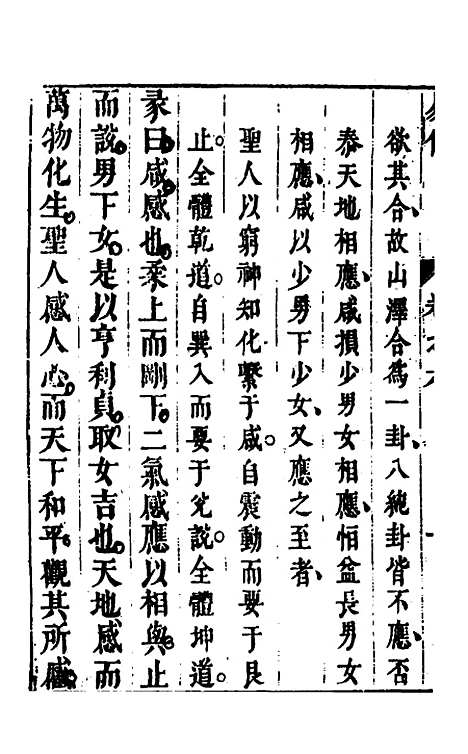 欲其合、故山澤合爲一卦、八純卦皆不應、否
泰天地相應、咸損少男女相應、恒益長男女
相應、咸以少男下少女、又應之至者、
聖人以窮神知化繫于咸。自震動而要于艮
止。全體乾道。自巽入而要于兌說。全體坤道。
彖曰咸感也柔上而剛下二氣感應以相與止
而說男下女是以亨利貞取女吉也天地感而
萬物化生聖人感人心而天下和平觀其所感